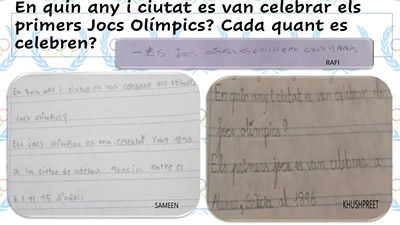 En quin any i ciutat es van celebrar els
primers Jocs Olímpics? Cada quant es
celebren?
- Els jocs es cada 4 anys
RAFI
En quin any i ciutat es van celebrar els primers
jocs olímpics?
Els jocs olímpics es van celebrar l'any 1896
a la ciutat de Atenas grecia entre el
6 i el 15 d'abril
SAMEEN
En quin any i ciutat es van celebrar els
jocs olímpics?
Els primers jocs es van celebrar a
Atenes, Grècia al 1896
KHUSHPREET